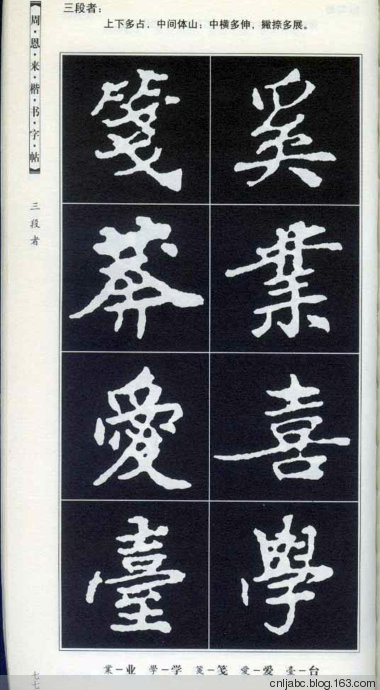 三段者：
上下多占，中间体山；中横多伸，撇捺多展。
【周·恩·来·楷·书·字·帖】
三段者
奚 箋
業 莽
喜 愛
學 臺
業—业 學—学 箋—笺 愛—爱 臺—台
cnljabc.blog.163.com